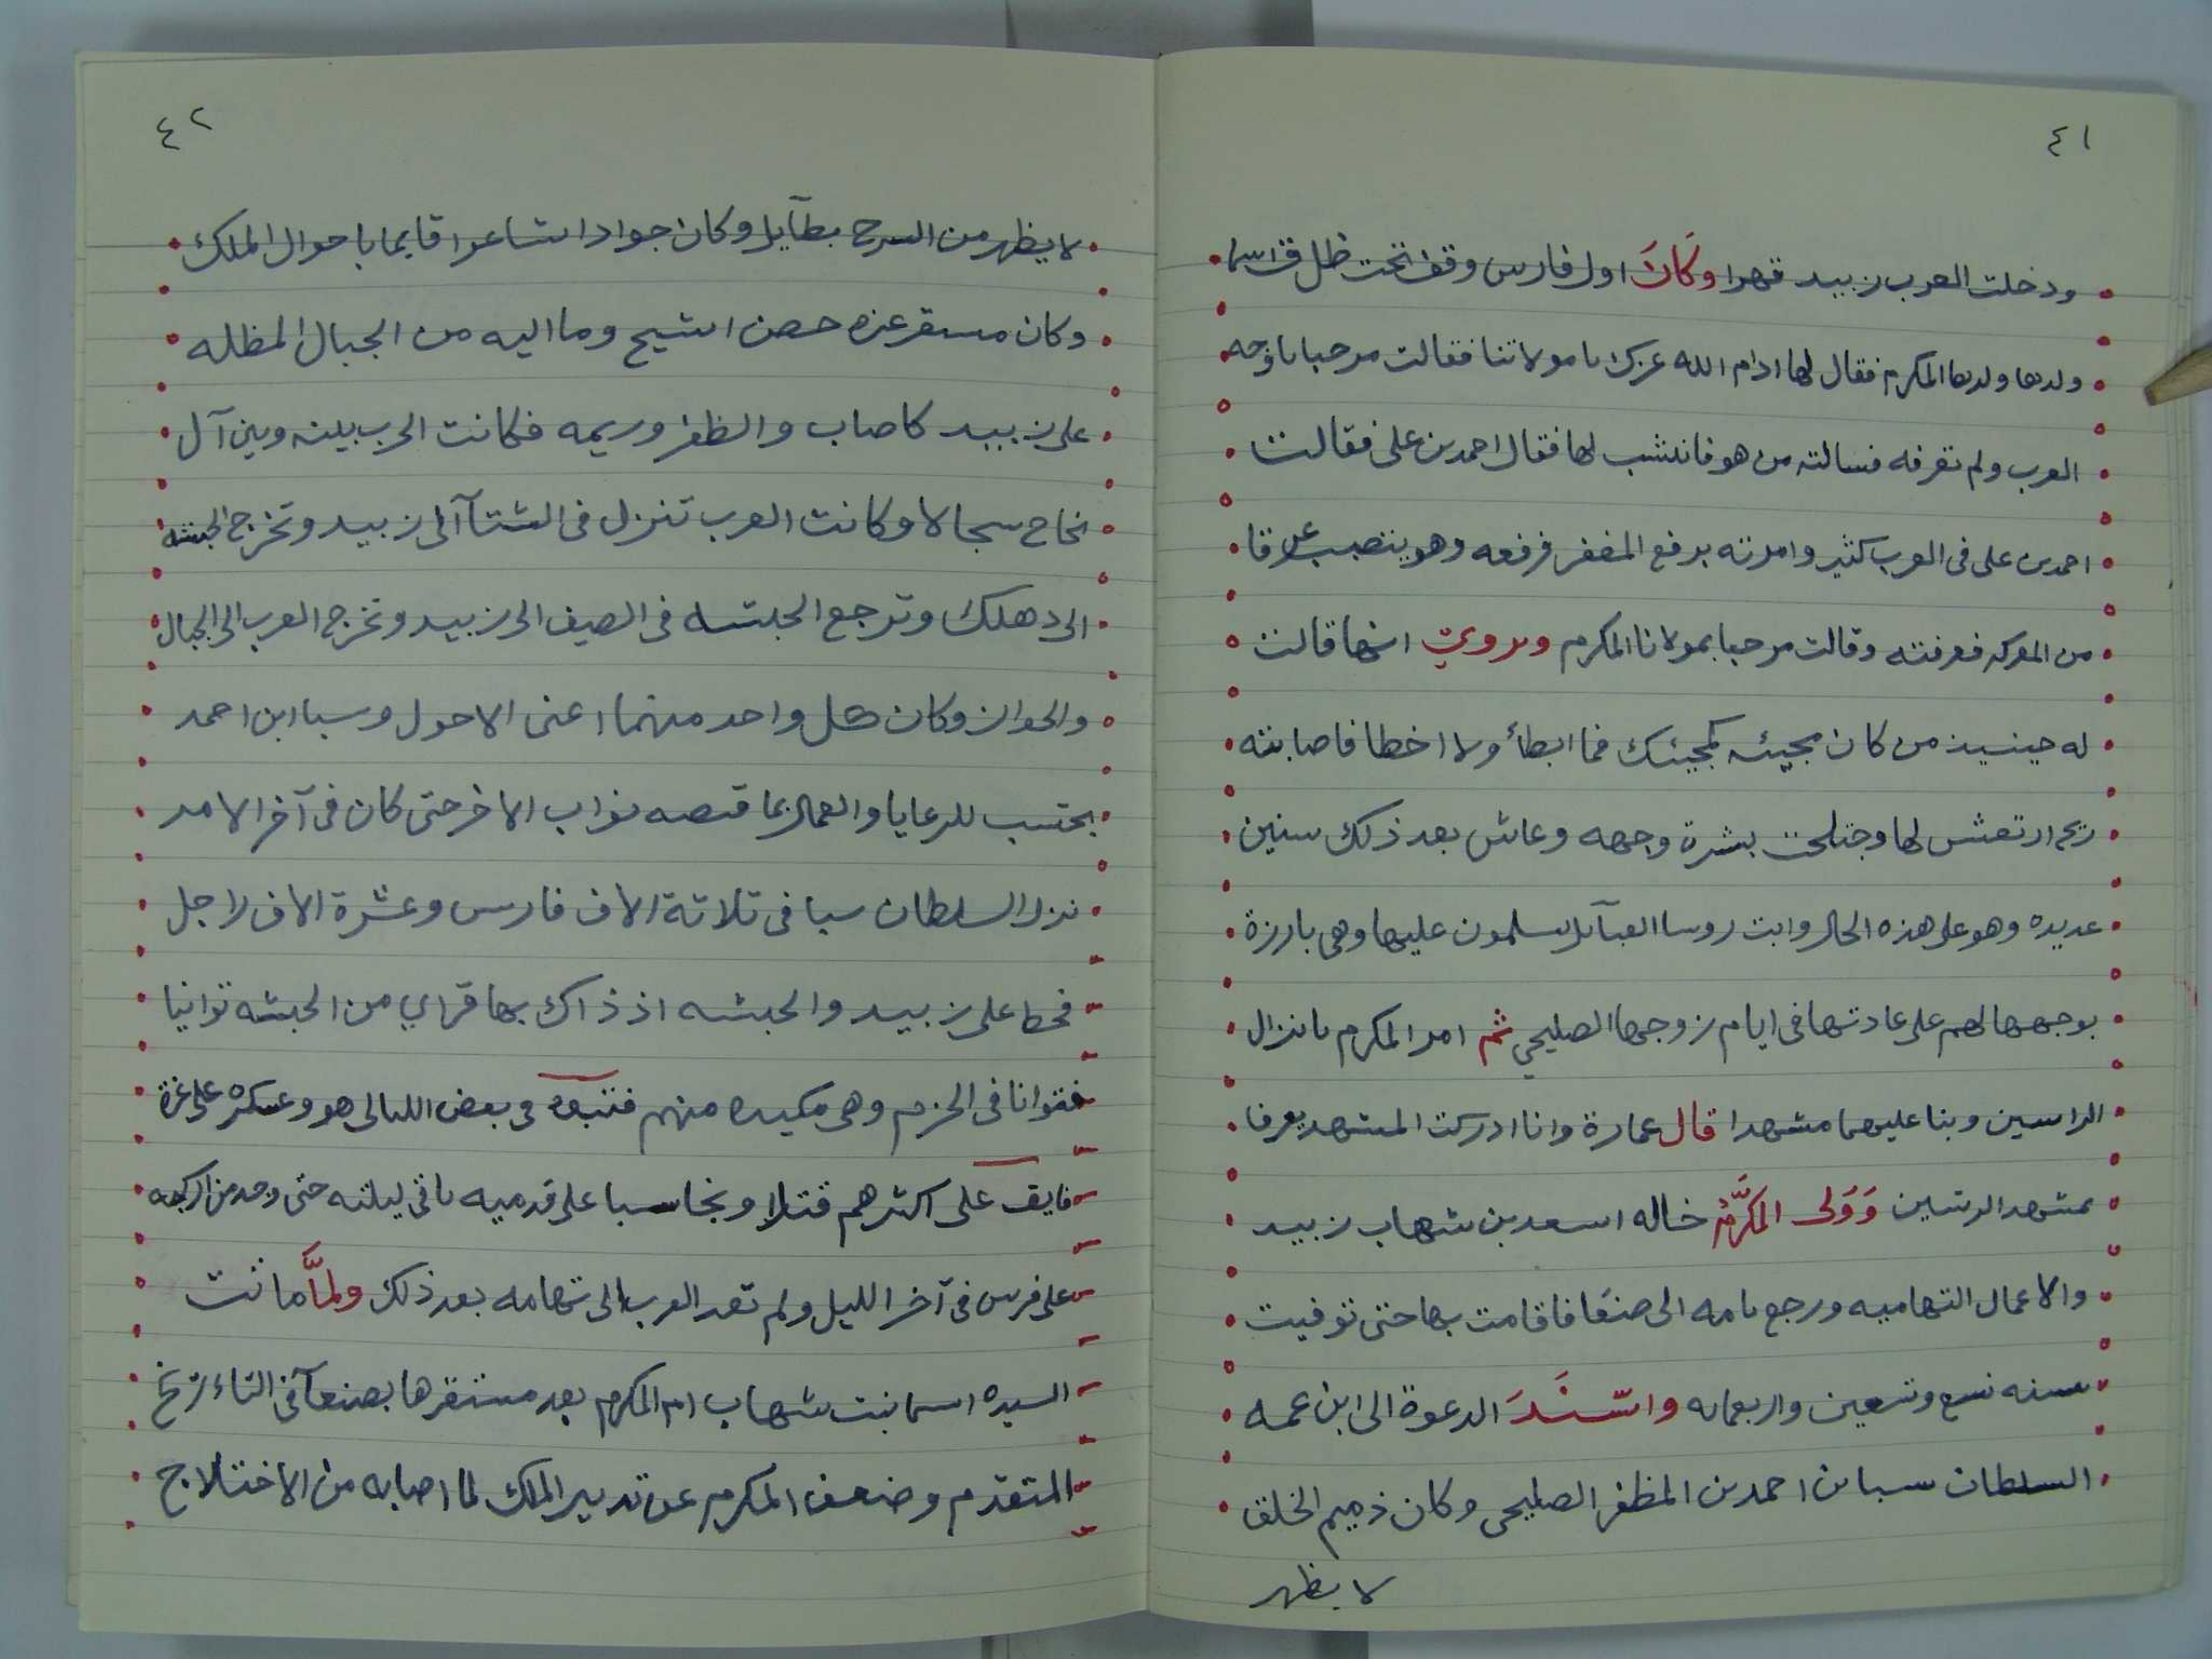 ٤١
ودخلت العرب زبيد قهرا وَكَانَ اول فارس وقف تحت ظل قـ اسما
ولدها ولدها المكرم فقال لها ادام الله عزك يا مولاتنا فقالت مرحبا باوجه
العرب ولم تعرفه فسالته من هو فانتسب لها فقال احمد بن على فقالت
احمد بن على فى العرب كثير وامرته برفع المغفر فرفعه وهو يتصبب عرقا
من المعركه فعرفته وقالت مرحبا بمولانا المكرم ويروى انها قالت
له حينيذ من كان مجيئه كمجيئك فما ابطأ ولا اخطا فاصابته
ريح ارتعش لها وجتلحت بشرة وجهه وعاش بعد ذلك سنين
عديده وهو على هذه الحال واتت روسا القبآئل يسلمون عليها وهى بارزة
بوجهها لهم على عادتها فى ايام زوجها الصليحي ثم امر المكرم بانزال
الراسين وبنا عليهما مشهدا قال عمارة وانا ادركت المشهد يعرفا
بمشهد الرسين وَوَلى المكرَّمُ خاله اسعد بن شهاب زبيد
والاعمال التهاميه ورجع بامه الى صنعا فاقامت بها حتى توفيت
سنه تسع وتسعين واربعمايه واسْنَدَ الدعوة الى ابن عمه
السلطان سبا بن احمد بن المظفر الصليحى وكان ذميم الخلق
لا يظهر
٤٢
لا يظهر من السرج بطآيل وكان جوادا شاعرا قايما باحوال الملك
وكان مستقر عزه حصن اشيح وما اليه من الجبال المظله
على زبيد كاصاب والظفر وريمه فكانت الحرب بينه وبين آل
نجاح سجالا وكانت العرب تنزل فى الشتآ الى زبيد وتخرج الحبشه
الى دهلك وترجع الحبشه فى الصيف الى زبيد وتخرج العرب الى الجبال
والحوان وكان كل واحد منهما اعنى الاحول وسبا ابن احمد
يحتسب للرعايا والعمال بما قبضه نواب الاخر حتى كان فى آخر الامر
نزل السلطان سبا فى ثلاثة الاف فارس وعشرة الاف راجل
فحط على زبيد والحبشه اذ ذاك بها فراي من الحبشه توانيا
فتوانا فى الحزم وهى مكيده منهم فتبعوه فى بعض الليالى هو وعسكره على غرة
فايق على اكثرهم قتلا ونجا سبا على قدميه باقى ليلته حتى وجد من اركبه
على فرس فى آخر الليل ولم تعد العرب الى تهامه بعد ذلك ولمَّا ماتت
السيده اسما بنت شهاب ام المكرم بعد مستقرها بصنعآ فى التاءريخ
المتقدم وضعف المكرم عن تدبير الملك لما اصابه من الاختلاج